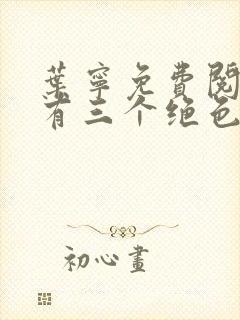 葉寧免費閱
有三个绝色
初心畫